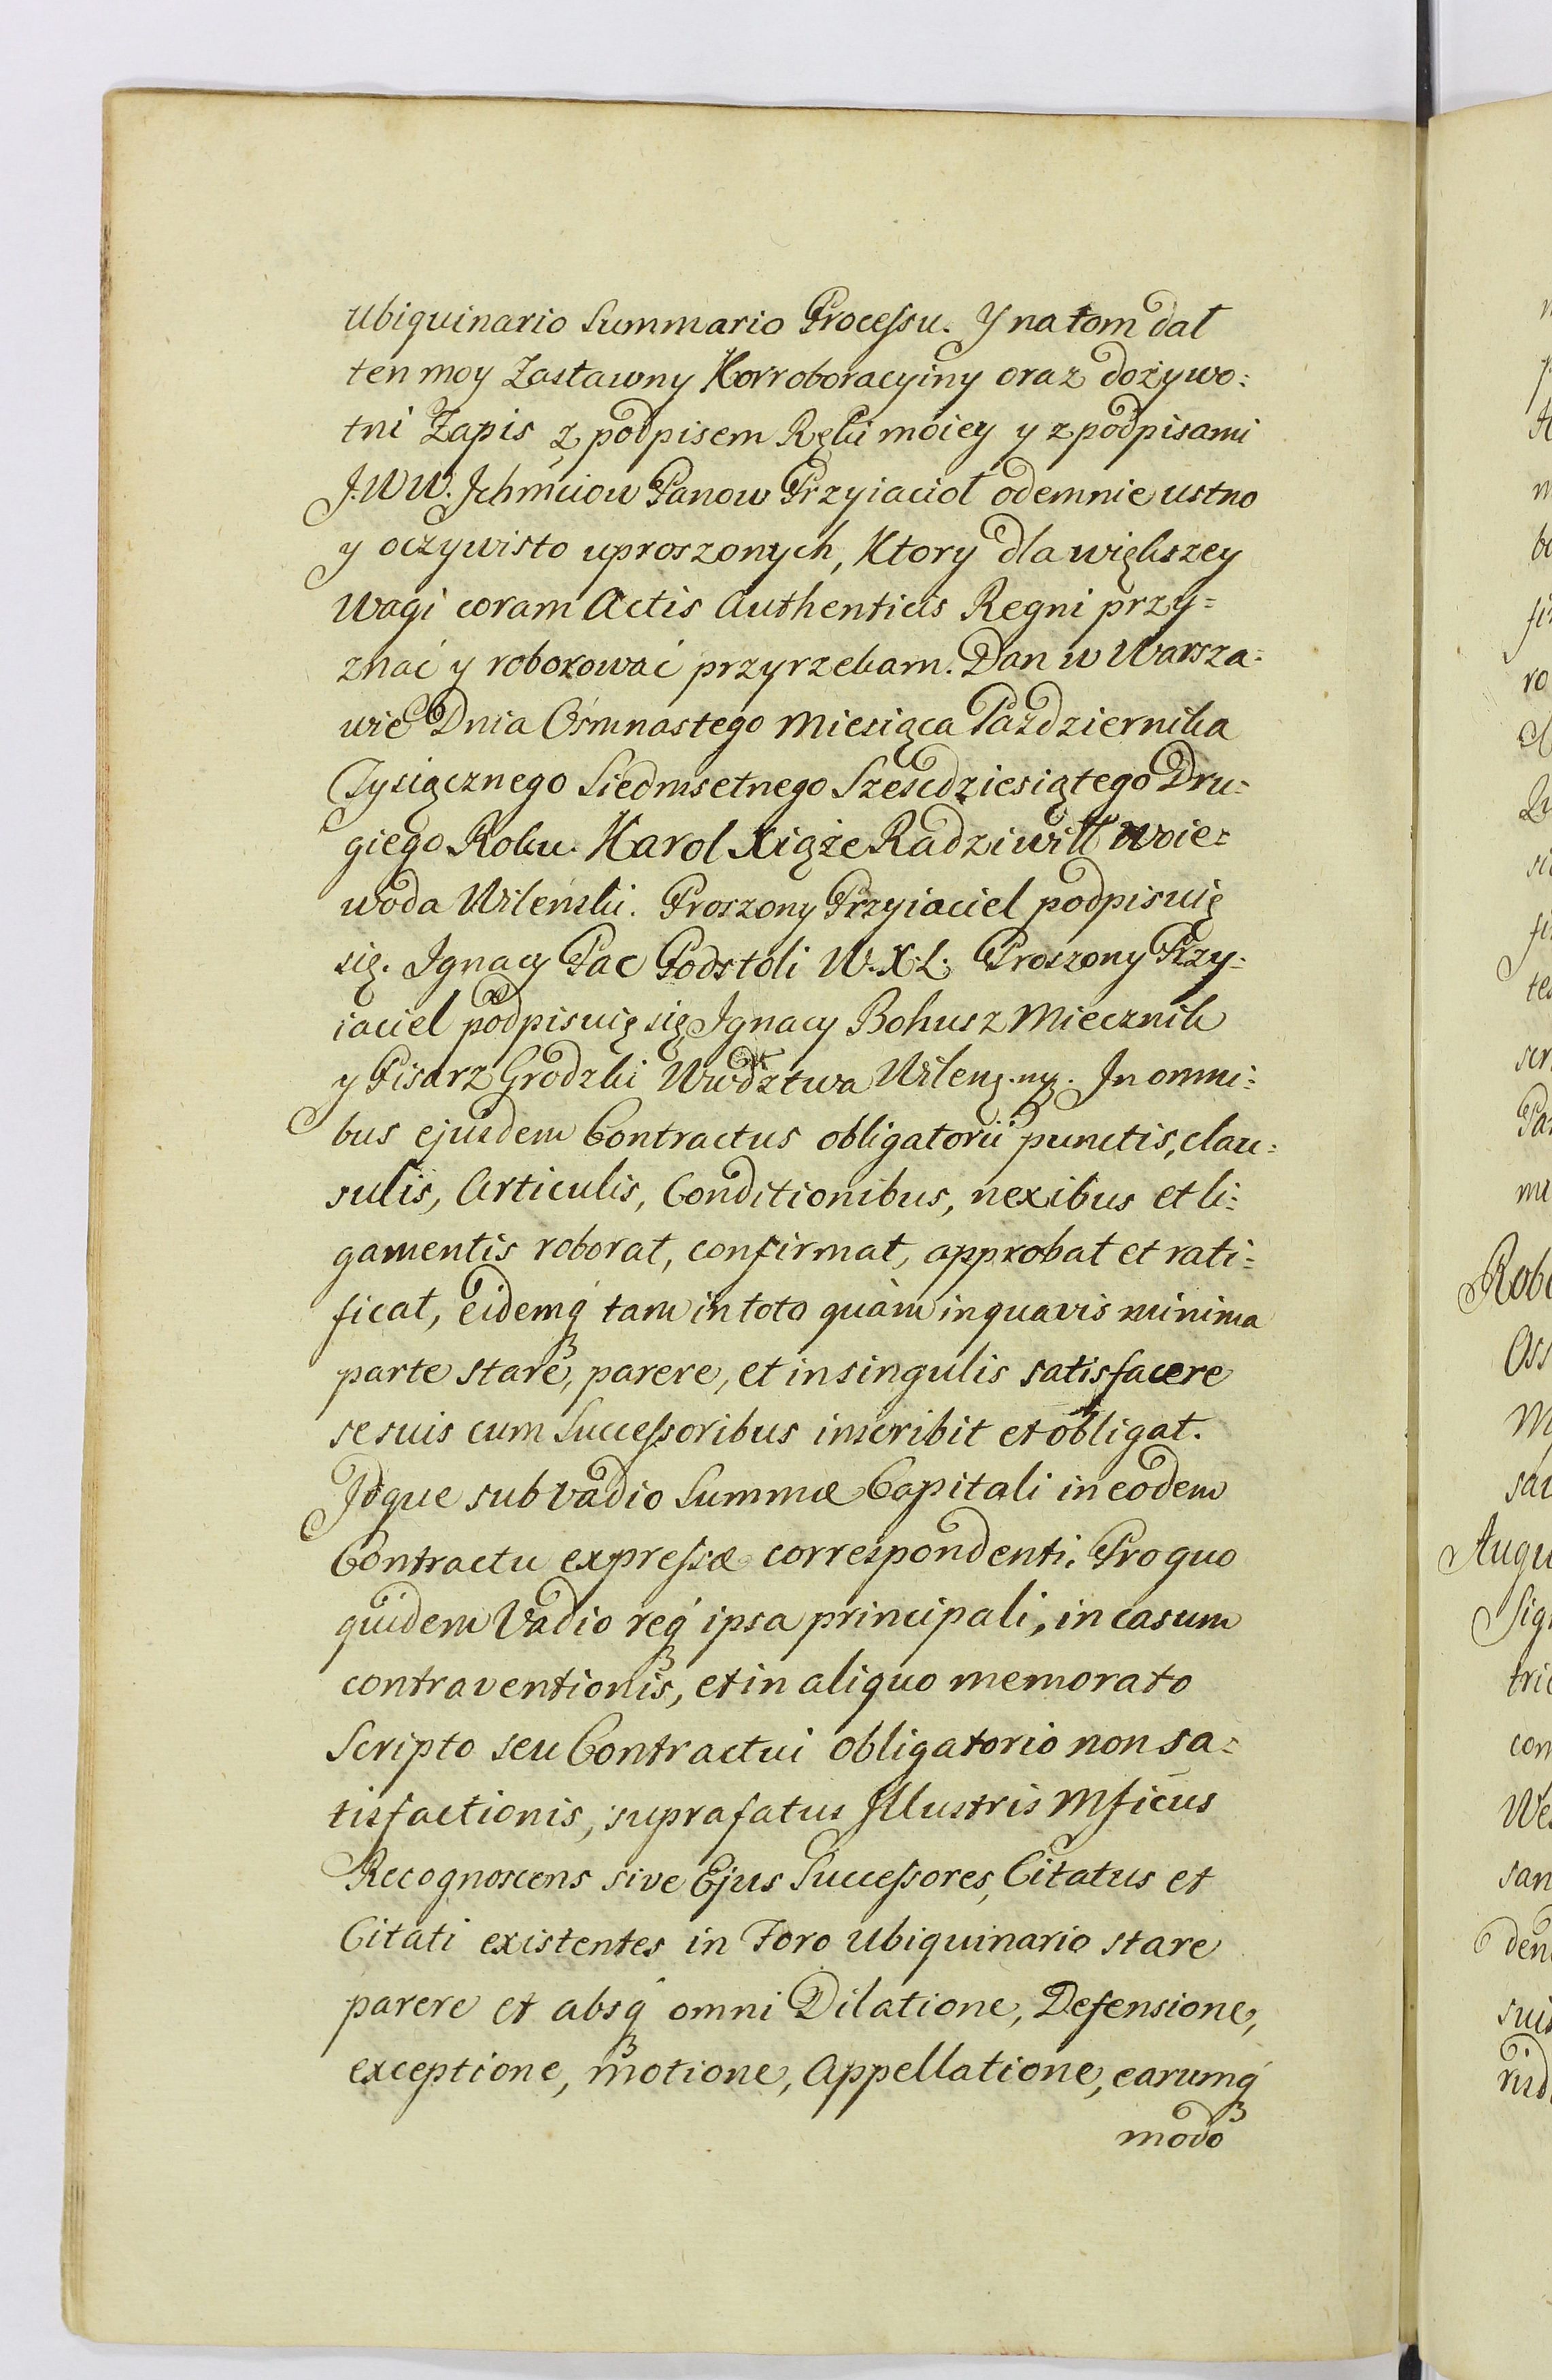 Ubiquinario Summario Processu. Y na tom dał
ten moy Zastawny Korroboracyiny oraz dożywo=
tni Zapis z podpisem Ręki moiey y z podpisami
J.WW. Jchmciow Panow Przyiacioł odemnie ustno
y oczywisto uproszonych, Ktory dla większey
Wagi coram Actis Authenticis Regni przy=
znać y roborować przyrzekam. Dan w Warsza=
wie Dnia Osmnastego Miesiąca Pazdziernika
Tysiącznego Siedmsetnego Szescdziesiątego Dru=
giego Roku. Karol Xiąże Radziwiłł Woie=
woda Wilenski. Proszony Przyiaciel podpisuię
się. Ignacy Pac Podstoli W.X.L. Proszony Przy=
iaciel podpisuię się Ignacy Bohusz Miecznik
y Pisarz Grodzki Wwdztwa Wileng.ng. In omni=
bus ejusdem Contractus obligatorii punctis, clau=
sulis, Articulis, Conditionibus, nexibus et li=
gamentis roborat, confirmat, approbat et rati=
ficat, eidemq́ꝫ tam in toto quàm in quavis minima
parte stare, parere, et in singulis satisfacere
se suis cum Successoribus inscribit et obligat.
Idque sub vadio Summæ Capitali in eodem
Contractu expressæ correspondenti. Pro quo
quidem Vadio req́ꝫ ipsa principali, in casum
contraventionis, et in aliquo memorato
Scripto seu Contractui obligatorio non sa=
tisfactionis, suprafatus Illustris Mficus
Recognoscens sive Ejus Successores, Citatus et
Citati existentes in Foro Ubiquinario stare
parere et absq́ꝫ omni Dilatione, Defensione,
exceptione, motione, Appellatione, earumq́ꝫ
modo